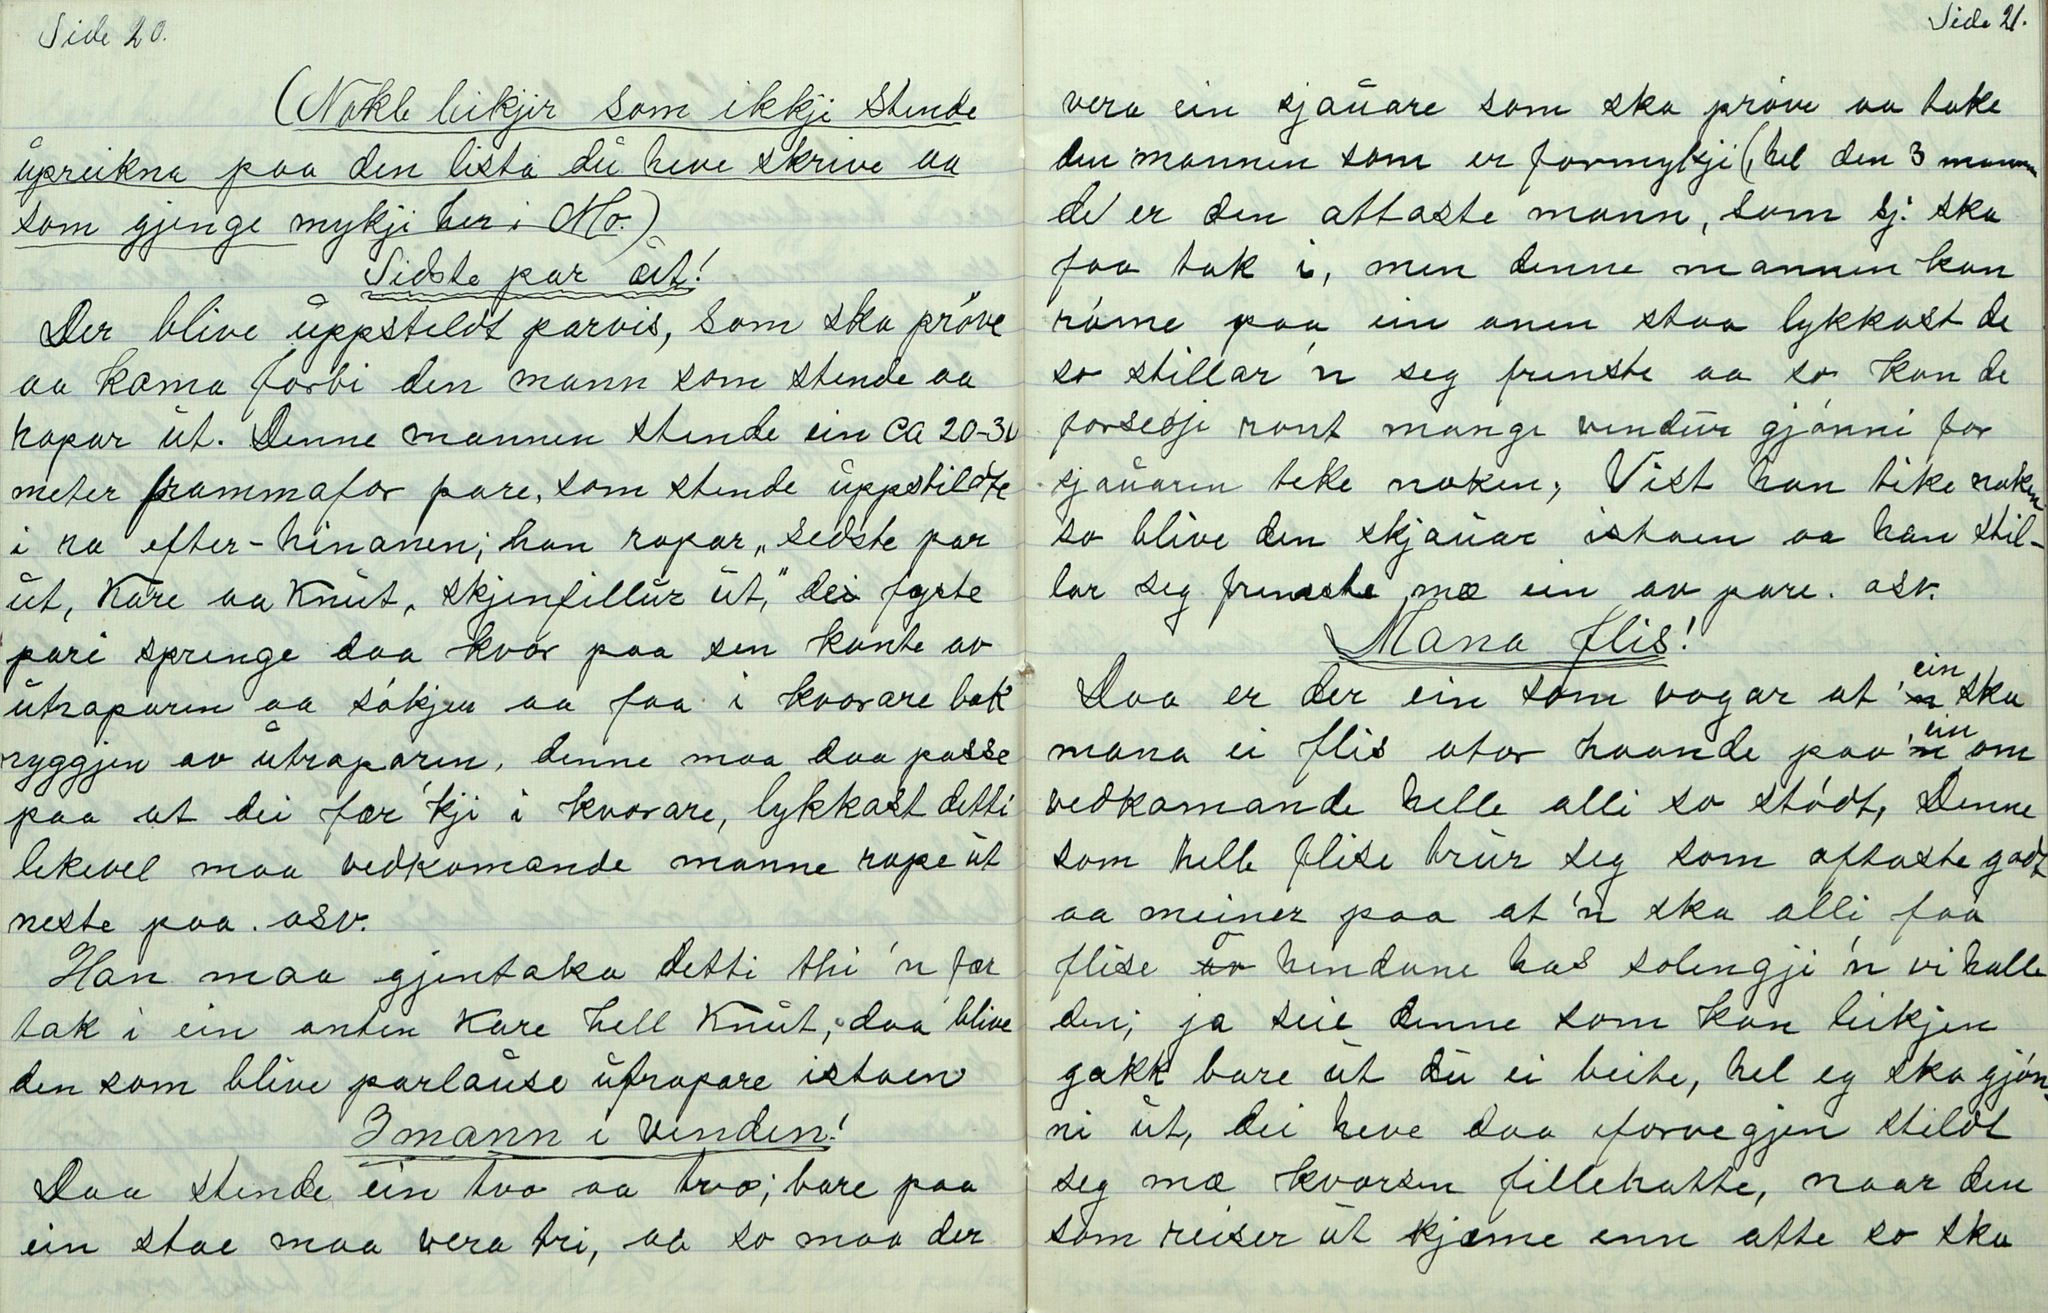 Side 20.
(Nokle leikjir som ikkji stende
üpreikna paa den lista dü heve skrive aa
som gjenge mykji her i Mo.)
Sidste par üt!
Der blive üppsteldt parvis, som ska pröve
aa koma forbi den mann som stende aa
ropar üt. Denne mannen stende ein ca 20-30
meter frammafor pare, som stende üppstildte
i ra efter-hinanen; han ropar „sedste par
üt, Kare aa Knüt, skjenfillür üt," dei fyste
pari sprenge daa kvor paa sen kante av
ütroparen aa sökjer aa faa i kvorare bak
ryggjen av ütroparen, denne maa daa passe
paa at dei fær 'kji i kvorare, lykkast detti
likevel maa vedkomande manne rope üt
neste paa. osv.
Han maa gjentaka detti thi 'n fær
tak i ein anten Kare hell Knüt, daa blive
den som blive parlaüse ütropare istaen
3 mann i vinden!
Daa stende ein tvo aa tvo; bare paa
ein stae maa vera tri, aa so maa der
Side 21.
vera ein sjaüare som ska pröve aa take
den mannen som er formykji (, hel den 3 mann
de er den attaste mann, som sj. ska
faa tak i, men denne mannen kan
röme paa ein anen staa lykkast de
so stillar 'n seg frenste aa so kan de
forseoje ront mange vendür gjönni for
sjaüaren teke noken, Vist han tike noken
so blive den skjaüar istaen aa han stil-
lar seg frenste mæ ein av pare. osv.
Mana flis!
Daa er der ein som vagar at 'ein ska
mana ei flis utor haande paa 'ein om
vedkomande helle alli so stödt, Denne
som helle flise trür seg som oftaste godt
aa meiner paa at 'n ska alli faa
flise or hendane has solengji 'n vi halle
den; ja seie denne som kan leikjen
gakk bare üt dü ei beite, hel eg ska gjön-
ni üt, dei heve daa forvegjen stildt
seg mæ kvorsen fillehatte, naar den
som reiser üt kjæme enn atte so ska